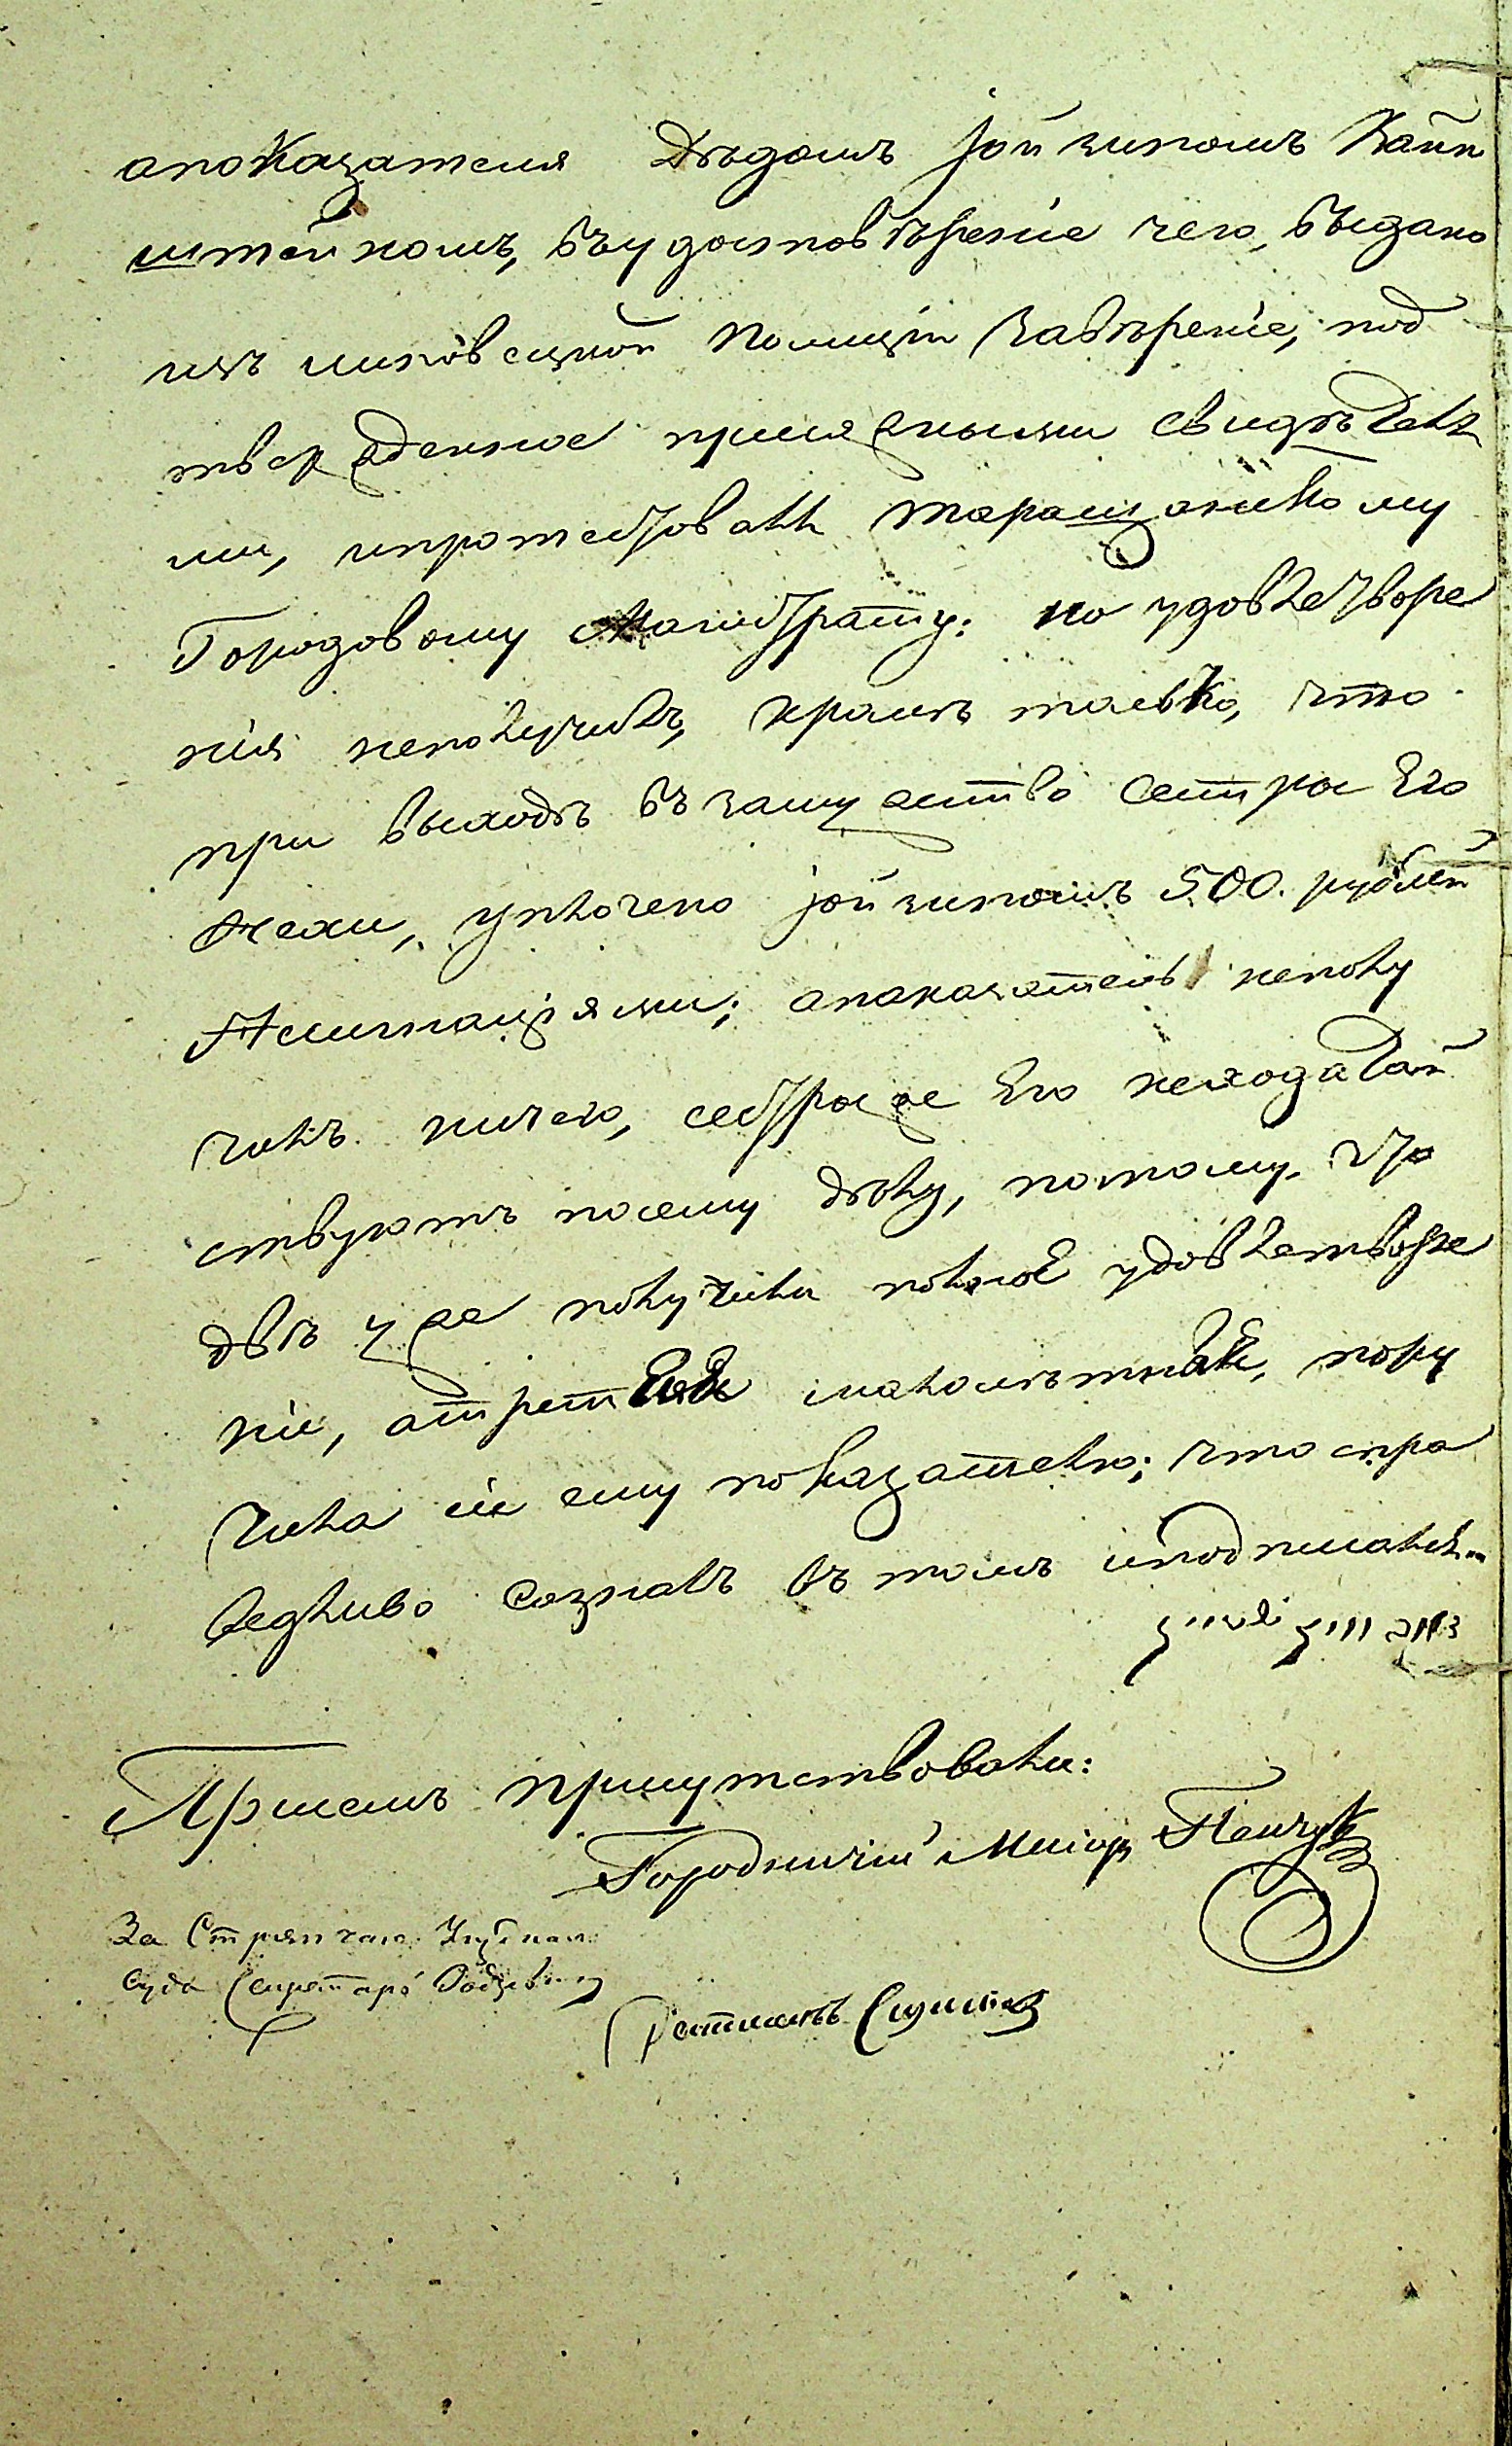 апоказателя Дѣдомъ Іойзипомъ Вайн
штейномъ, въудостовѣреніе чего, выдано
изъ липовецкой Полиціи Завѣреніе, под
твержденное присяжными свидѣтеля
ми, ипротестовалъ таращанскому
Городовому Магистрату: но удовлетворе
нія неполучилъ, кромѣ только, что
при выходѣ въ замужество сестры Его
Нехи, уплочено Іойзипомъ 500. рублей
Ассигнаціями; апоказатель неполу
чилъ ничего, сестры же Его неходатай
ствуютъ посему дѣлу, потому что
двѣ уже получили полное удовлетворе
ніе, атретья малолѣтная, пору
чила ему показателю; что спра
ведливо сознавъ въ томъ иподписался
Присемъ присутствовали:
Городничій Маіоръ
За Стряпчаго
суда Секретарь
Ратманъ